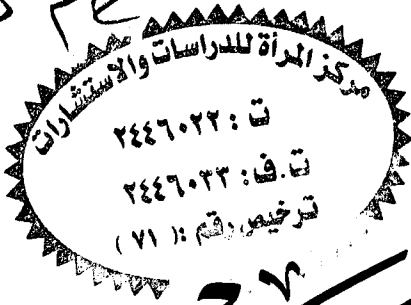 ٢٤
مركز المرأة للدراسات والاستشارات
ت : ٢٤٤٦٠٢٢
ت.ف: ٢٤٤٦٠٣٣
ترخيص رقم :( ٧١ )